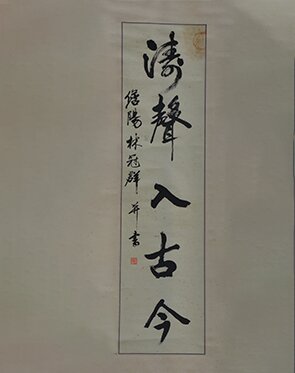 濤聲入古今
林冠群 并書